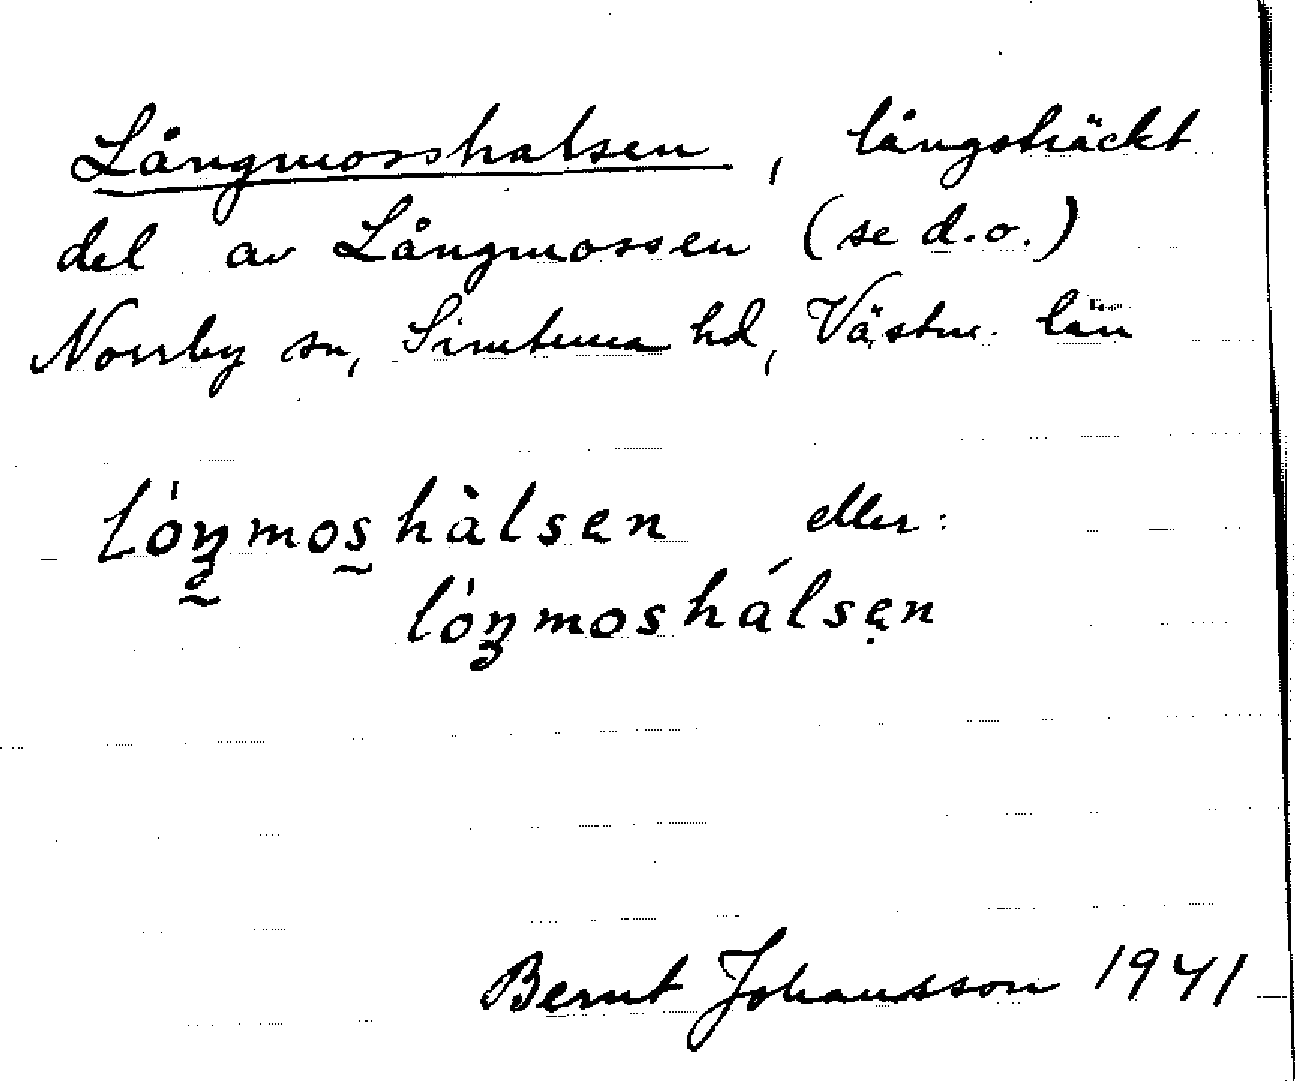 Långmosshalsen, långsträckt
del av Långmossen (se d.o.)
Norrby sn, Simtuna hd, Västm. län
lóŋmos̰hàlsen eller:
lóŋmoshálsẹn
Bernt Johansson 1941